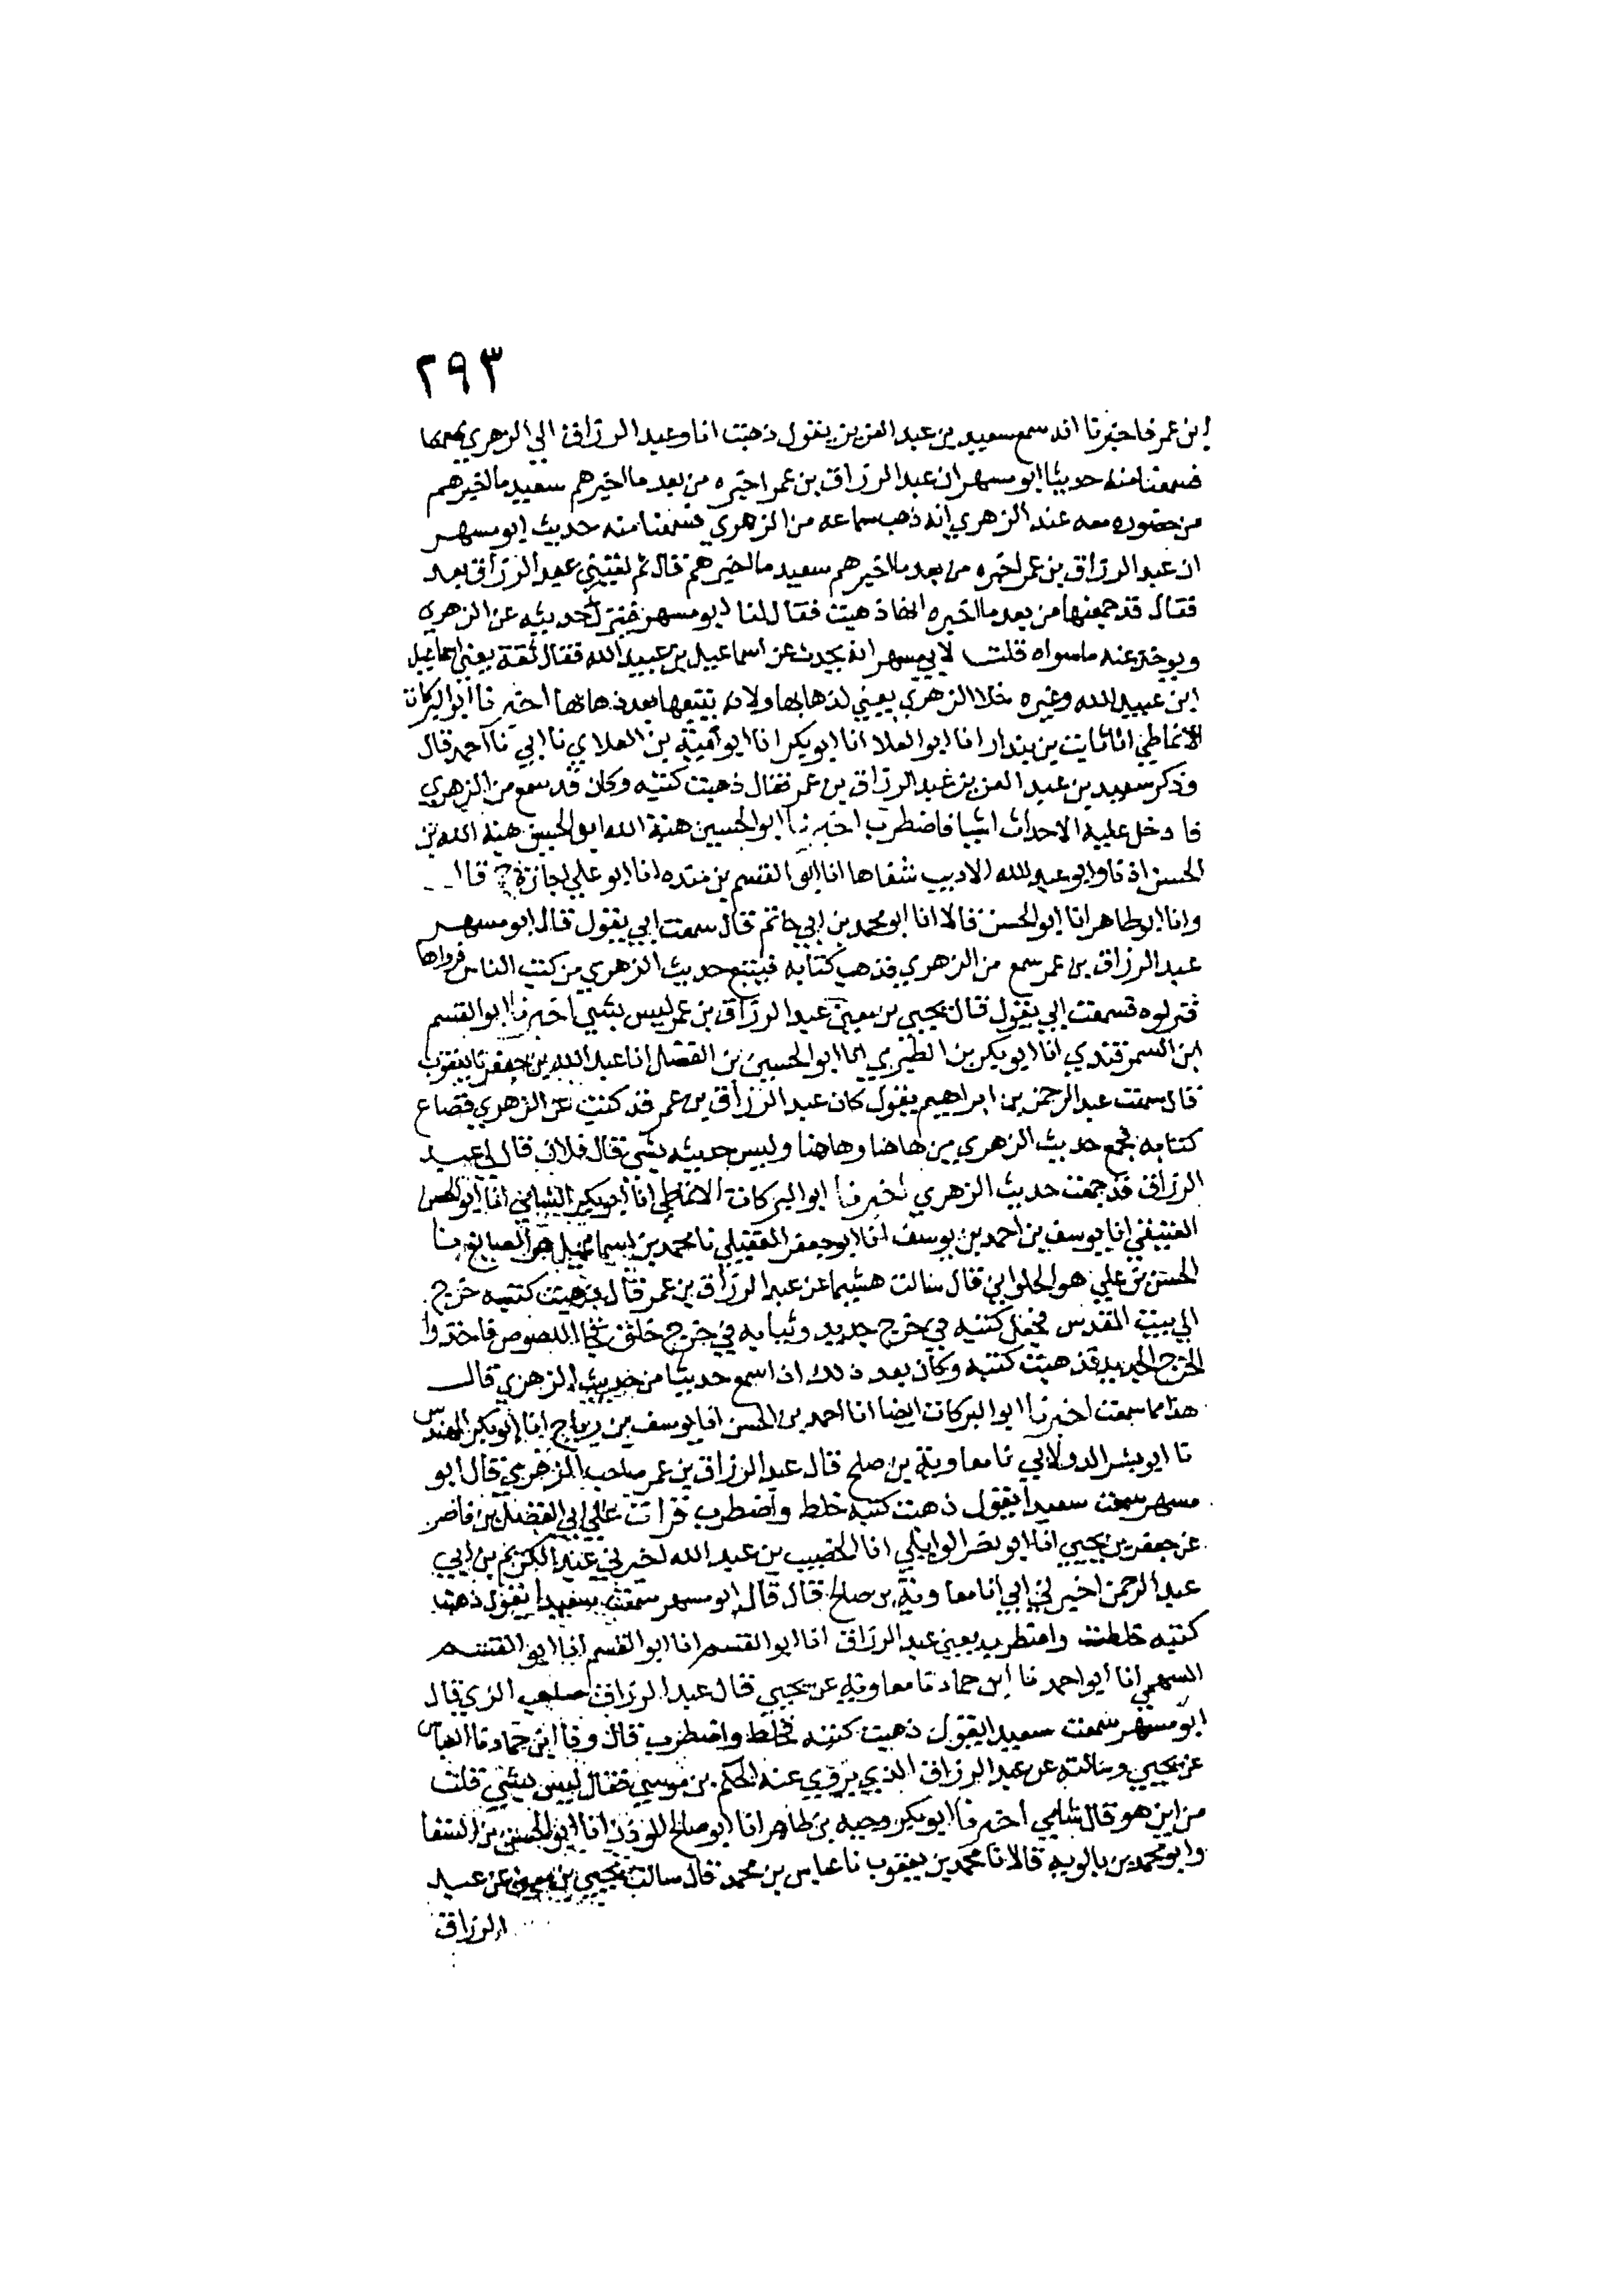 ٢٩٣
ابن عمر فاخبرنا انه سمع سعيد بن عبد العزيز يقول ذهبت انا وعبد الرزاق الي الزهري
فسمعنا منه حديثا ابو مسهر ان عبد الرزاق بن عمر اخبره من بعد ما اخبرهم سعيد ما اخبرهم
من حضوره معه عند الزهري انه ذهب سماعه من الزهري فسمعنا منه حديث ابو مسهر
ان عبد الرزاق بن عمر اخبره من بعد ما اخبرهم سعيد ما اخبرهم قال ثم لقيني عبد الرزاق بعد
فقال قد جمعتها من بعد ما اخبره انها ذهبت فقال لنا ابو مسهر فيترك حديثه عن الزهري
ويوخذ عنه ما سواه قلت لابي مسهر انه يحدث عن اسماعيل بن عبيد الله فقال ثقة يعني اسماعيل
ابن عبيد الله وغيره خلا الزهري يعني لذهابها ولانه تتبعها بعد ذهابها اخبرنا ابو البركات
الانماطي انا ثابت بن بندار انا ابو العلا انا ابو بكر انا ابو امية بن العلاي نا ابي نا احمد قال
وذكر سعيد بن عبد العزيز عبد الرزاق بن عمر فقال ذهبت كتبه وكان قد سمع من الزهري
فا دخل عليه الاحداث اشيا فاضطرب اخبرنا ابو الحسين هبة الله ابو الحسين هبة الله بن
الحسن اذنا وابو عبد الله الاديب شفاها انا ابو القسم بن منده انا ابو علي اجازة ح قال
وانا ابو طاهر انا ابو الحسن قالا انا ابو محمد بن ابي حاتم قال سمعت ابي يقول قال ابو مسهر
عبد الرزاق بن عمر سمع من الزهري فذهب كتابه فيتتبع حديث الزهري من كتب الناس فرواها
فتركوه فسمعت ابي يقول قال يحيي بن معين عبد الرزاق بن عمر ليس بشي اخبرنا ابو القسم
ابن السمرقندي انا ابو بكر بن الطبري انا ابو الحسين بن الفضل انا عبد الله بن جعفر نا يعقوب
قال سمعت عبد الرحمن بن ابراهيم يقول كان عبد الرزاق بن عمر قد كتب عن الزهري فضاع
كتابه فجمع حديث الزهري من هاهنا وهاهنا وليس حديثه بشي قال فلان قال لي عبد
الرزاق قد جمعت حديث الزهري اخبرنا ابو البركات الانماطي انا ابو بكر الشامي انا ابو الحسن
العتيقي انا يوسف بن احمد بن يوسف انا ابو جعفر العقيلي نا محمد بن اسماعيل هو الصايغ نا
الحسن بن علي هو الحلواني قال سالت هشيما عن عبد الرزاق بن عمر فقال ذهبت كتبه خرج
الي بيت المقدس فجعل كتبه في خرج جديد وثيابه في خرج خلق فجا اللصوص فاخذوا
الخرج الجديد فذهبت كتبه وكان بعد ذلك اذا سمع حديثا من حديث الزهري قال
هذا مما سمعت اخبرنا ابو البركات ايضا انا احمد بن الحسن انا يوسف بن رباح انا ابو بكر المهندس
نا ابو بشر الدولابي نا معاوية بن صلح قال عبد الرزاق بن عمر صاحب الزهري قال ابو
مسهر سمعت سعيدا يقول ذهبت كتبه خلط واضطرب قرات علي ابي الفضل بن ناصر
عن جعفر بن يحيي انا ابو نصر الوايلي انا الخصيب بن عبد الله اخبرني عبد الكريم بن ابي
عبد الرحمن اخبرني ابي انا معاوية بن صلح قال قال ابو مسهر سمعت سعيدا يقول ذهبت
كتبه خلطت واضطرب يعني عبد الرزاق انا ابو القسم انا ابو القسم انا ابو القسم
السهمي انا ابو احمد نا ابن حماد نا معاوية عن يحيي قال عبد الرزاق صاحب الزي قال
ابو مسهر سمعت سعيدا يقول ذهبت كتبه فخلط واضطرب قال ونا ابن حماد نا العباس
عن يحيي وسالته عن عبد الرزاق الذي يروي عنه الحكم بن موسي فقال ليس بشي قلت
من اين هو قال شامي اخبرنا ابو بكر وجيه بن طاهر انا ابو صلح الموذن انا ابو الحسن بن السقا
وابو محمد بن بالويه قالا نا محمد بن يعقوب نا عباس بن محمد قال سالت يحيي بن معين عن عبد
الرزاق